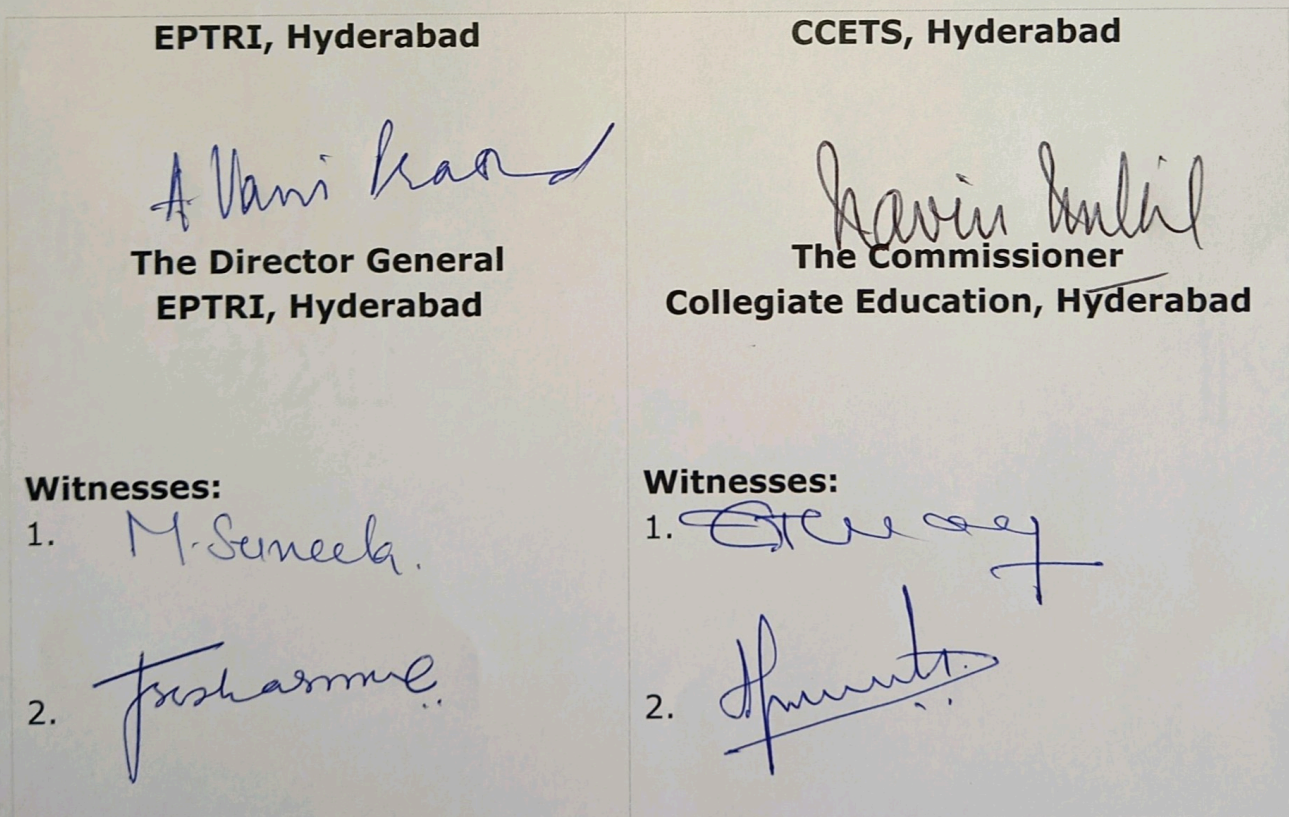 EPTRI, Hyderabad
A Vani Prasad
The Director General
EPTRI, Hyderabad
Witnesses:
1. M. Suneela.
2.
CCETS, Hyderabad
Navin Mittal
The Commissioner
Collegiate Education, Hyderabad
Witnesses:
1.
2.